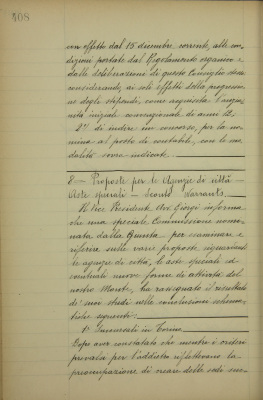 408
con effetto dal 15 dicembre corrente, alle con-
dizioni portate dal Regolamento organico e
dalla deliberazione di questo Consiglio stesso
considerando, ai soli effetti della progressione
as degli stipendi, come acquisita l'anzia-
nità iniziale convenzionale di anni 12
2º di indire un concorso, per la no-
mina al posto di contabile, con le mo-
dalità sovra indicate.
8 - Proposte per le Agenzie di città -
Aste speciali - Sconto Warrants.
Il Vice Presidente Avv. Giorgi informa
che una speciale Commissione nomi-
nata dalla Giunta per esaminare e
riferire sulle varie proposte riguardanti
le agenzie di città, le aste speciali ed
eventuali nuove forme di attività del
nostro Monte, ha rassegnato il risultato
de' suoi studi nelle conclusioni schema-
tiche seguenti:
1º Succursali in Torino
Dopo aver constatato che mentre i criteri
prevalsi per l'addietro riflettevano la
preoccupazione di creare delle sedi suc-